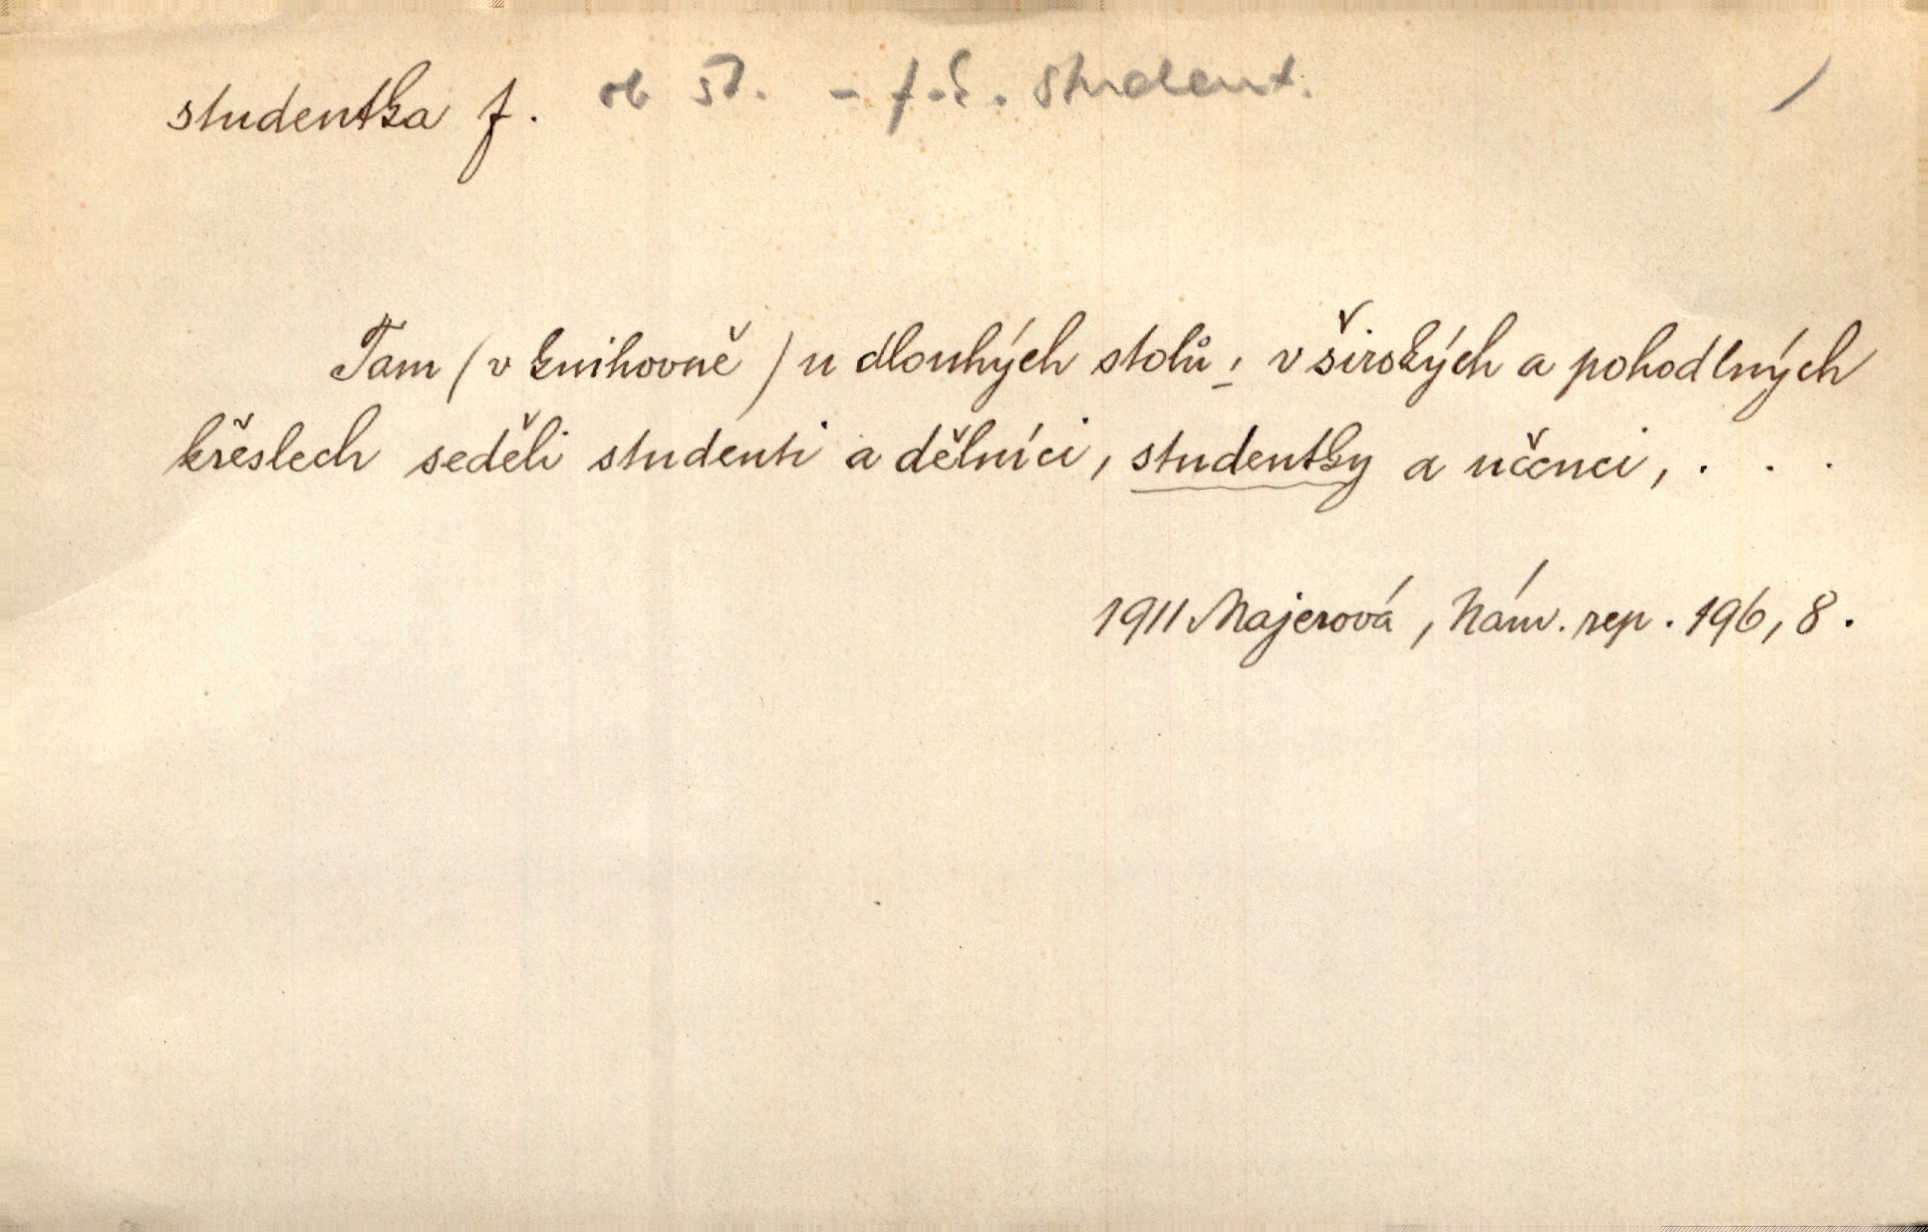 studentka f. ob st. - f. č. student.
Tam (v knihovně) u dlouhých stolů, v širokých a pohodlných
křeslech seděli studenti a dělníci, studentky a učenci, . . .
1911 Majerová, Nám. rep. 196, 8.